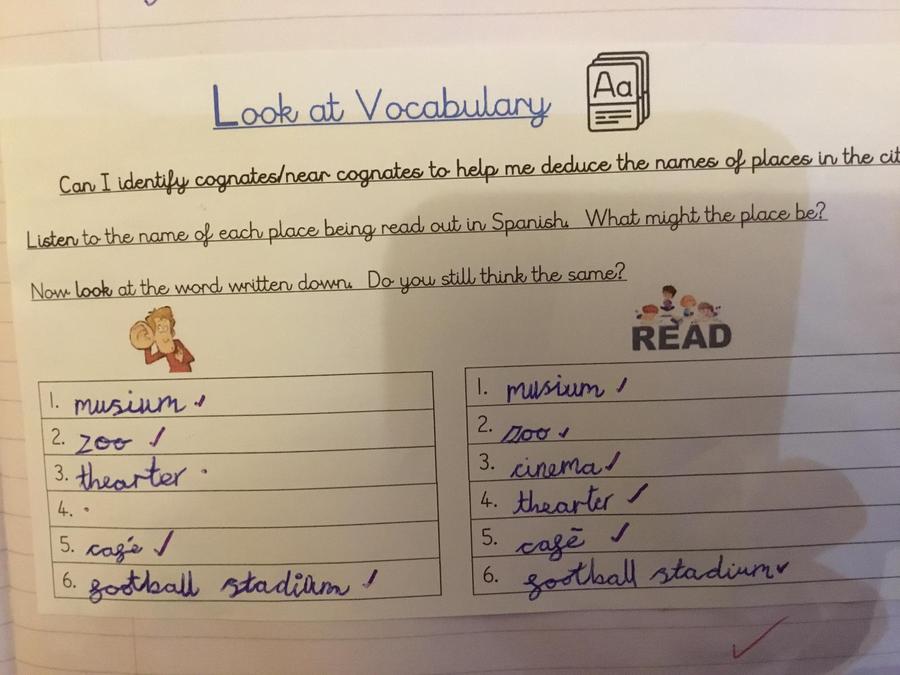 Look at Vocabulary
Aa
Can I identify cognates/near cognates to help me deduce the names of places in the cit
Listen to the name of each place being read out in Spanish. What might the place be?
Now look at the word written down. Do you still think the same?
READ
1. musium ✓
2. zoo ✓
3. thearter ·
4. ·
5. café ✓
6. football stadium ✓
1. musium ✓
2. zoo ✓
3. cinema ✓
4. thearter ✓
5. cafē ✓
6. football stadium ✓